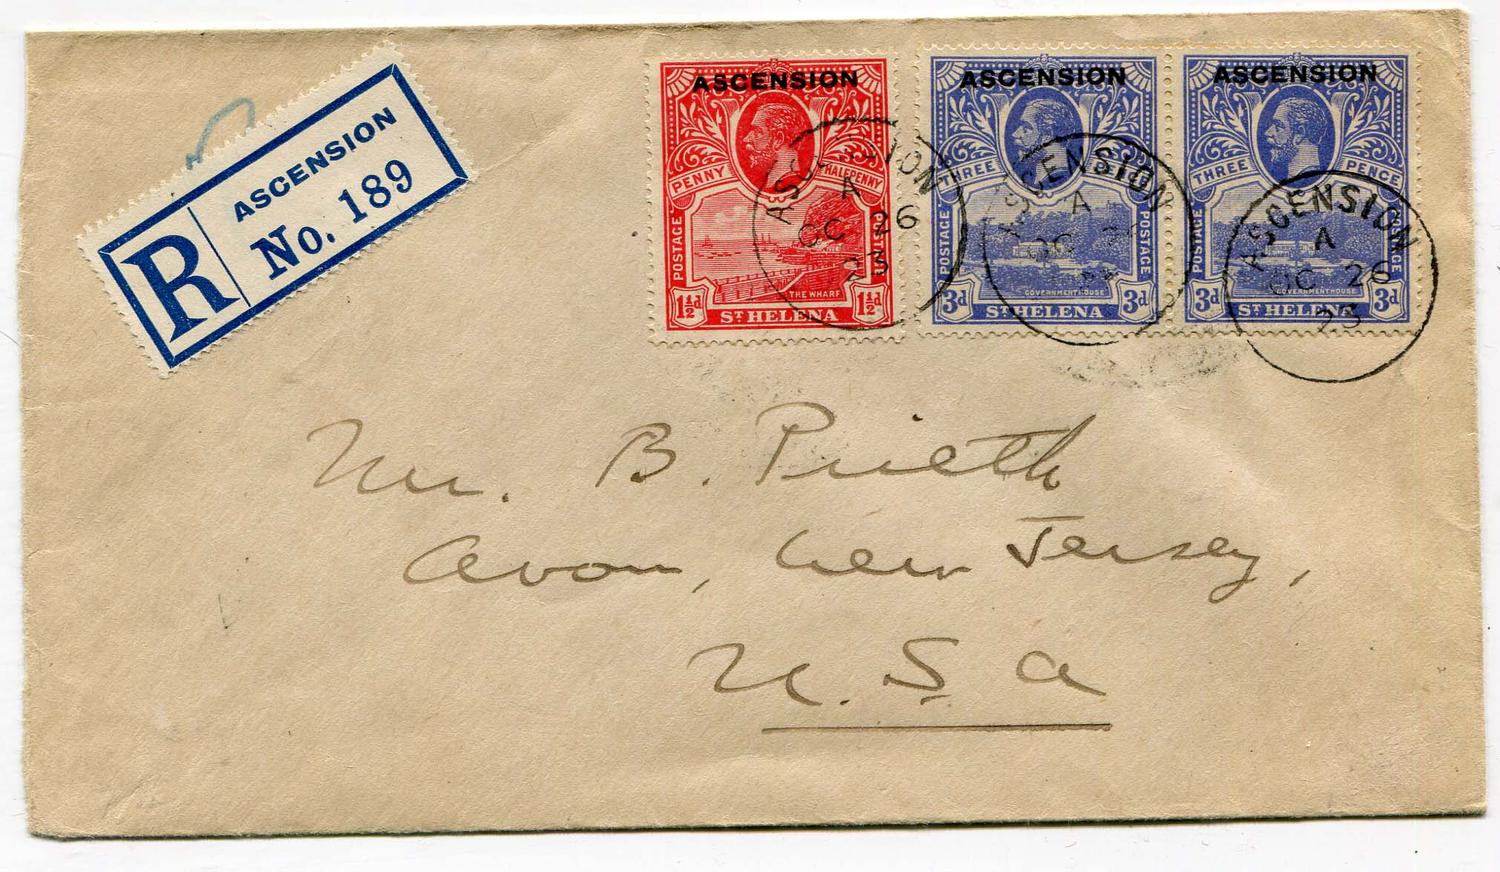 R
ASCENSION
No. 189
ASCENSION
PENNY HALFPENNY
POSTAGE POSTAGE
THE WHARF
1½d 1½d
ST HELENA
ASCENSION
A
OC 26
23
ASCENSION
THREE
POSTAGE POSTAGE
GOVERNMENT HOUSE
3d 3d
ST HELENA
ASCENSION
A
OC
ASCENSION
THREE PENCE
POSTAGE POSTAGE
GOVERNMENT HOUSE
3d 3d
ST HELENA
ASCENSION
A
OC 26
23
Mr. B. Prieth
Avon, New Jersey,
U.S.A